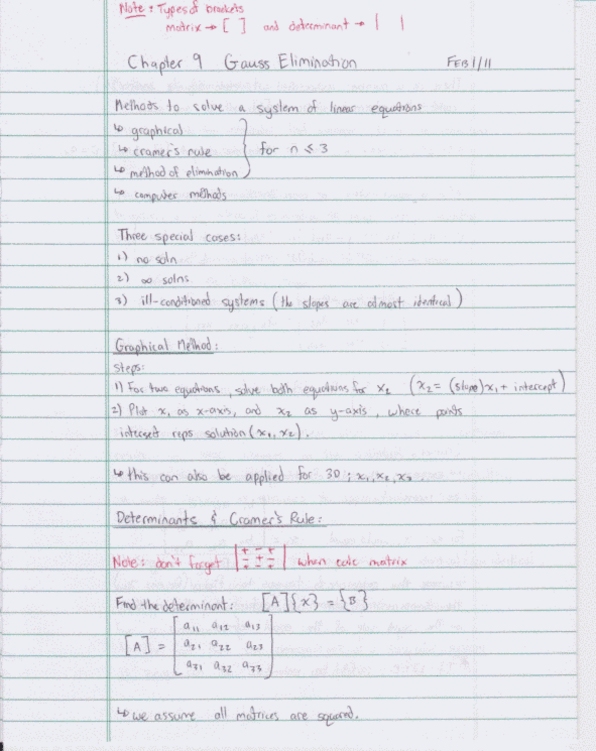 Note: Types of brackets
matrix → [ ] and determinant → | |
Chapter 9 Gauss Elimination FEB 1/11
Methods to solve a system of linear equations
↳ graphical
↳ cramer's rule } for n ≤ 3
↳ method of elimination
↳ computer methods
Three special cases:
1) no soln
2) ∞ solns
3) ill-conditioned systems (the slopes are almost identical)
Graphical Method:
Steps:
1) For two equations, solve both equations for x₂ (x₂ = (slope)x₁ + intercept)
2) Plot x, as x-axis, and x₂ as y-axis, where points
intersect reps solution (x₁, x₂).
↳ this can also be applied for 3D; x₁, x₂, x₃
Determinants & Cramer's Rule:
Note: don't forget |+ - +| when calc matrix
|- + -|
|+ - +|
Find the determinant: [A]{x} = {B}
a₁₁ a₁₂ a₁₃
[A] = a₂₁ a₂₂ a₂₃
a₃₁ a₃₂ a₃₃
↳ we assume all matrices are squared.